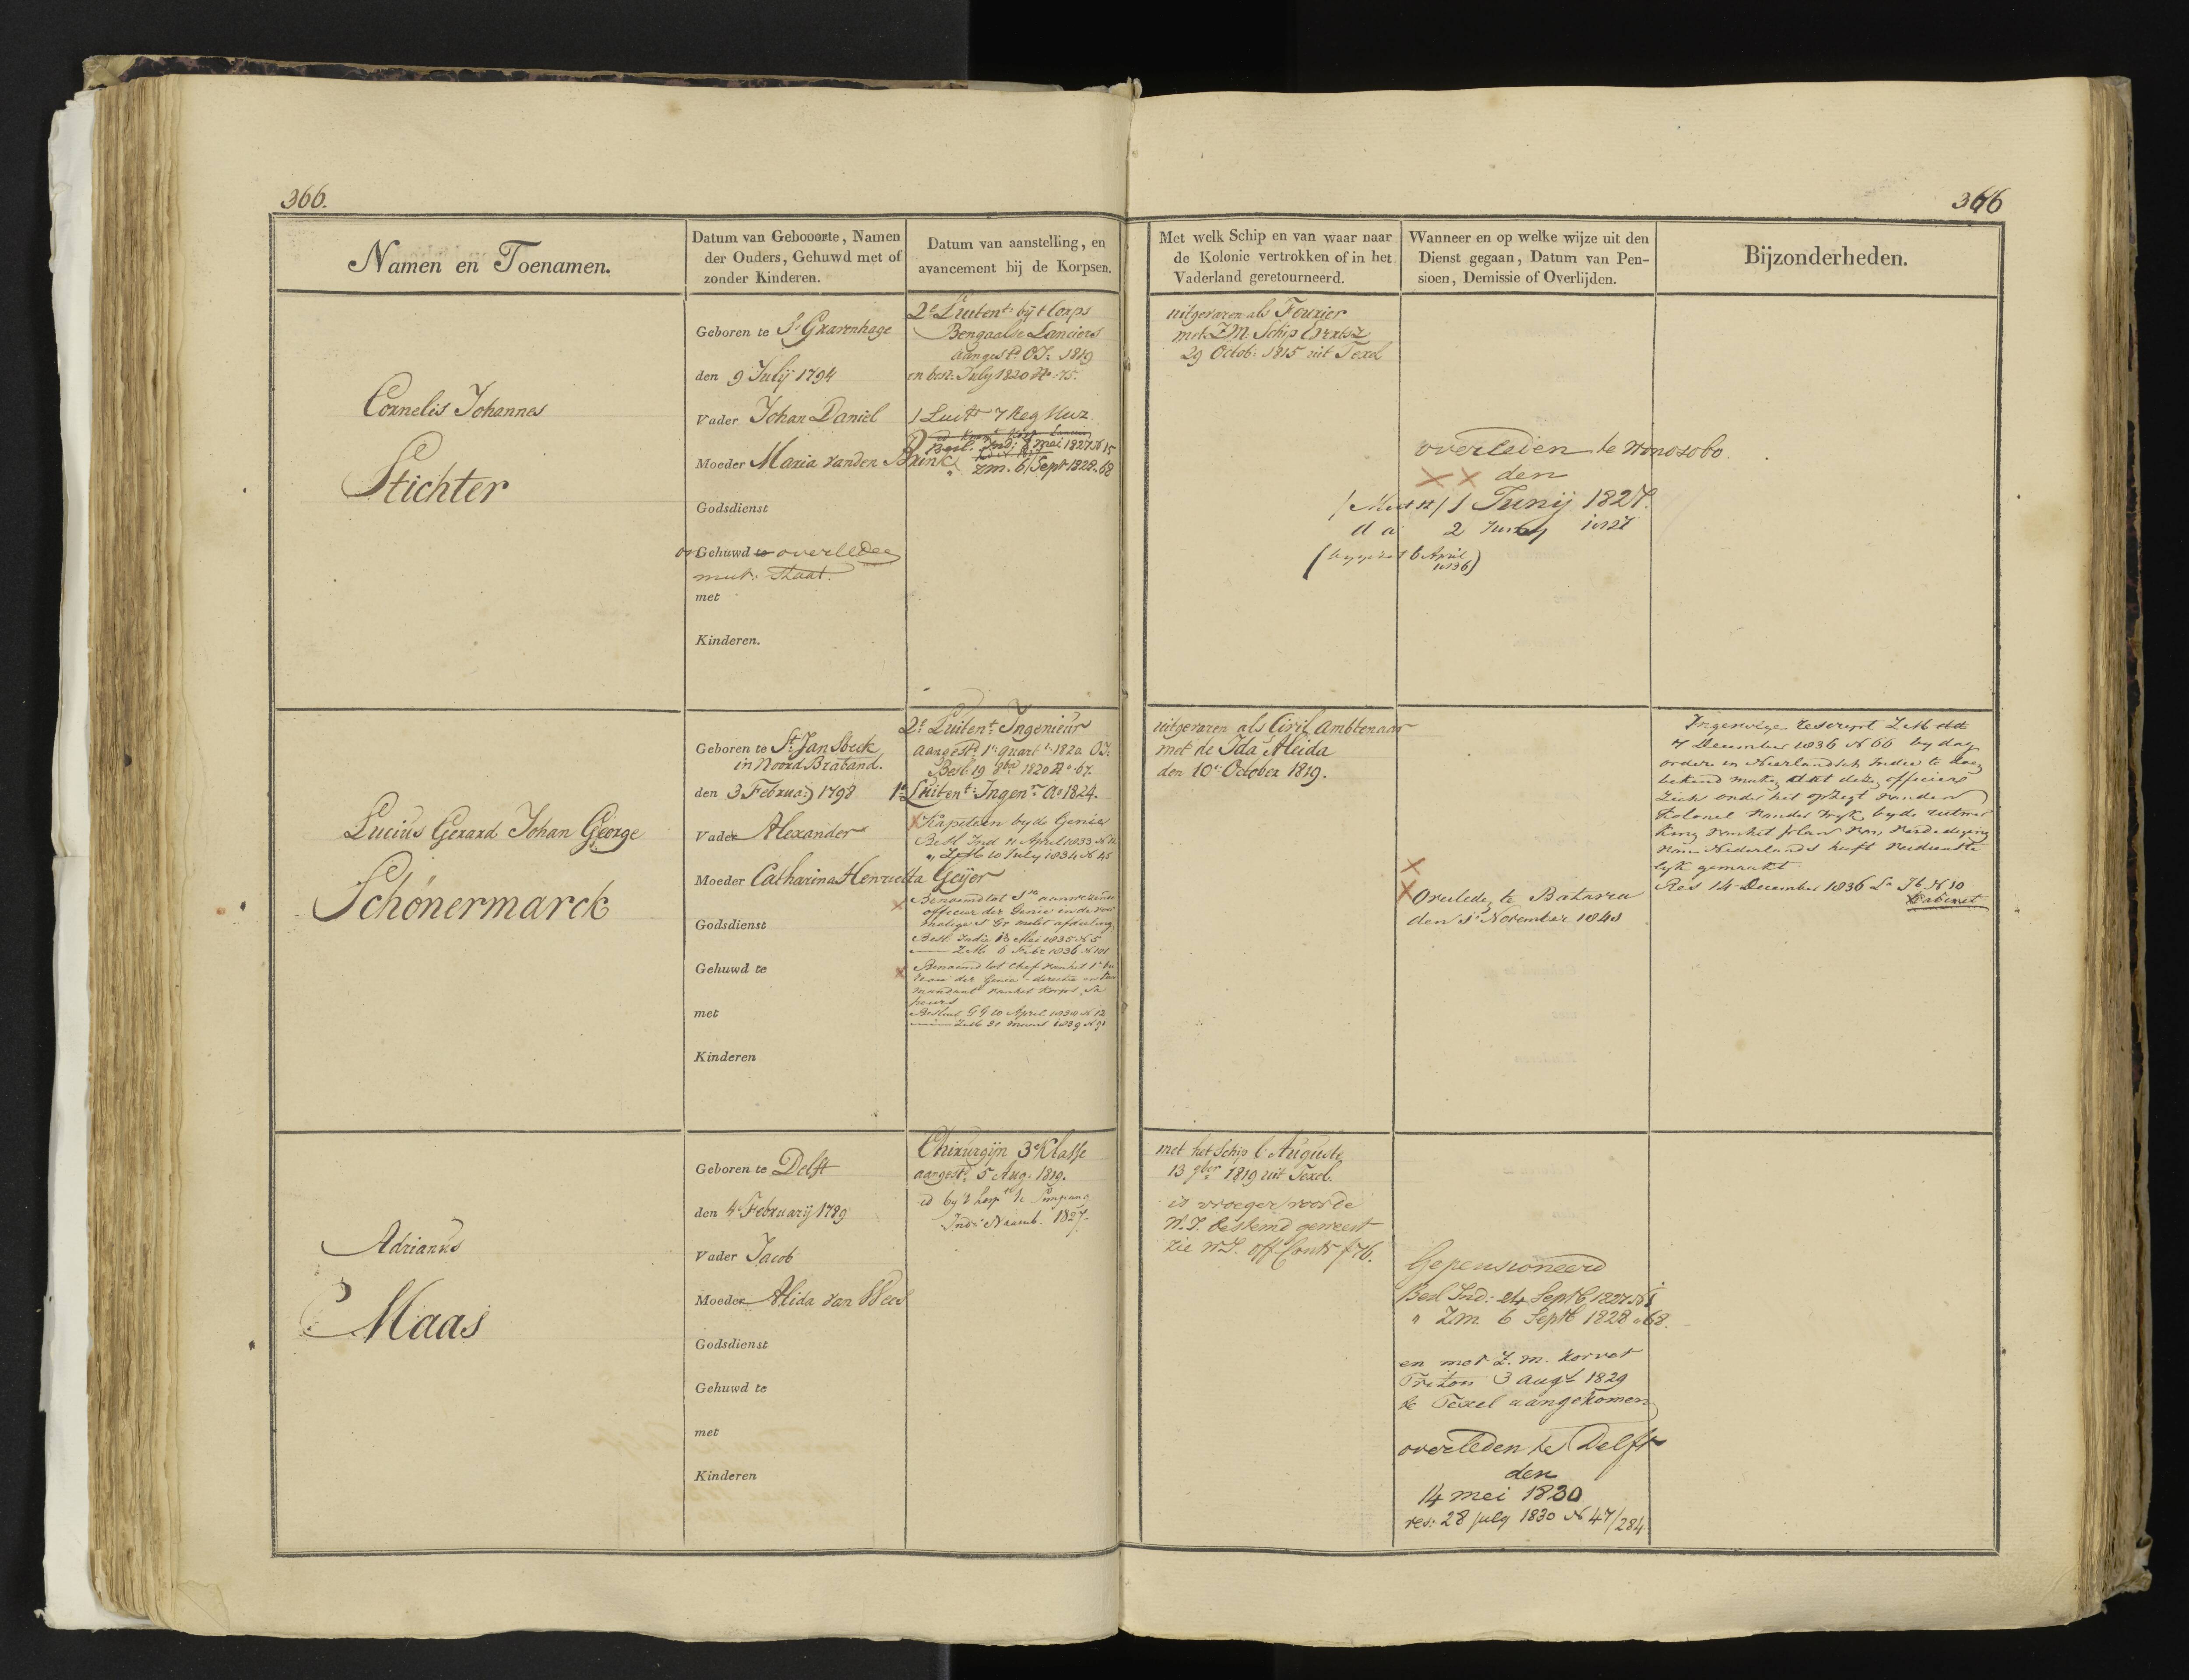 366.
366
Namen en Toenamen.
Datum van Gebooorte, Namen
der Ouders, Gehuwd met of
zonder Kinderen.
Datum van aanstelling, en
avancement bij de Korpsen.
Met welk Schip en van waar naar
de Kolonie vertrokken of in het
Vaderland geretourneerd.
Wanneer en op welke wijze uit den
Dienst gegaan, Datum van Pen-
sioen, Demissie of Overlijden.
Bijzonderheden.
Cornelis Johannes
Stichter
Geboren te S'Gravenhage
den 9 Julij 1794
Vader Johan Daniel
Moeder Maria van den Brink
Godsdienst
Gehuwd overleden
mut: Staat.
met
Kinderen.
2e Luitent. bij t Corps
Bengaalse Lanciers
aangestd. OI: 1819
en besl. July 1820 No. 75.
1 Luitt 7 Reg Huz
Besl. Ind: 8 Mei 1827 N 15
" ZM. 6 Sept 1828. 68
uitgevaren als Fourier
met ZM. Schip Evertsz
29 Octob. 1815 uit Texel
overleden te Wonosobo
den
1 Junij 1827.
da 2 Junij 1827
6 April
1836)
Lucius Gerard Johan George
Schönermarck
Geboren te St. Jan Steck
in Noord Braband.
den 3 Februa: 1798
Vader Alexander
Moeder Catharina Henrietta Geijer
Godsdienst
Gehuwd te
met
Kinderen
2e Luitent Ingenieur
aangestd. 1e quart l. 1820 OI.
Besl. 19 8ber 1820 No. 67.
1e Luitent: Ingenr. Ao 1824.
Kapitein by de Genie
Besl Ind 11 April 1833 N 12
" ZM 10 July 1834 N 45
Benoemd tot 1n aanwezend
officier der Genie in de voor
malige
Besl. Indie 13 Mei 1835 N 5
ZM 6 Febr 1836 N 101
Benoemd tot Chef van het 1e Bu
reau der Genie directie en Kom
mandant van het Korps Sa
peurs
Besluit GG 10 April 1838 N 12
ZM 31 Maart 1839 N 91
uitgevaren als Civil Ambtenaar
met de Ida Aleida
den 10e October 1819.
Overleden te Batavia
den 1 November 1840
Ingevolge rescript ZM dd
7 December 1836 N 66 by dag
orders in Neerlandsch Indie te doen
bekend maken dat deze officiers
zich onder het opzegt van den
Kolonel van der Wyk by de uitwer
king van het plan van verdediging
van Nederlands heeft verdienste
lyk gemaakt.
Res 14 December 1836 La N 10
Kabinet
Adrianus
Maas
Geboren te Delft
den 4 Februarij 1789
Vader Jacob
Moeder Alida van Wees
Godsdienst
Gehuwd te
met
Kinderen
Chirurgijn 3e Klasse
aangestd. 5 Aug. 1819.
id by 't Corps te Simpang
Ind: Naamb. 1827.
met het Schip l'Auguste
13 9ber 1819 uit Texel.
is vroeger voor de
W.I. bestemd geweest
zie W.I. off. Contr f 76.
Gepensioneerd
Besl Ind: 24 Septb 1827 N 1
" ZM. 6 Septb 1828 " 68.
en met Z.M. Korvet
Triton 3 Augt 1829
te Texel aangekomen
overleden te Delft
den
14 Mei 1830
res: 28 July 1830 N 47/284